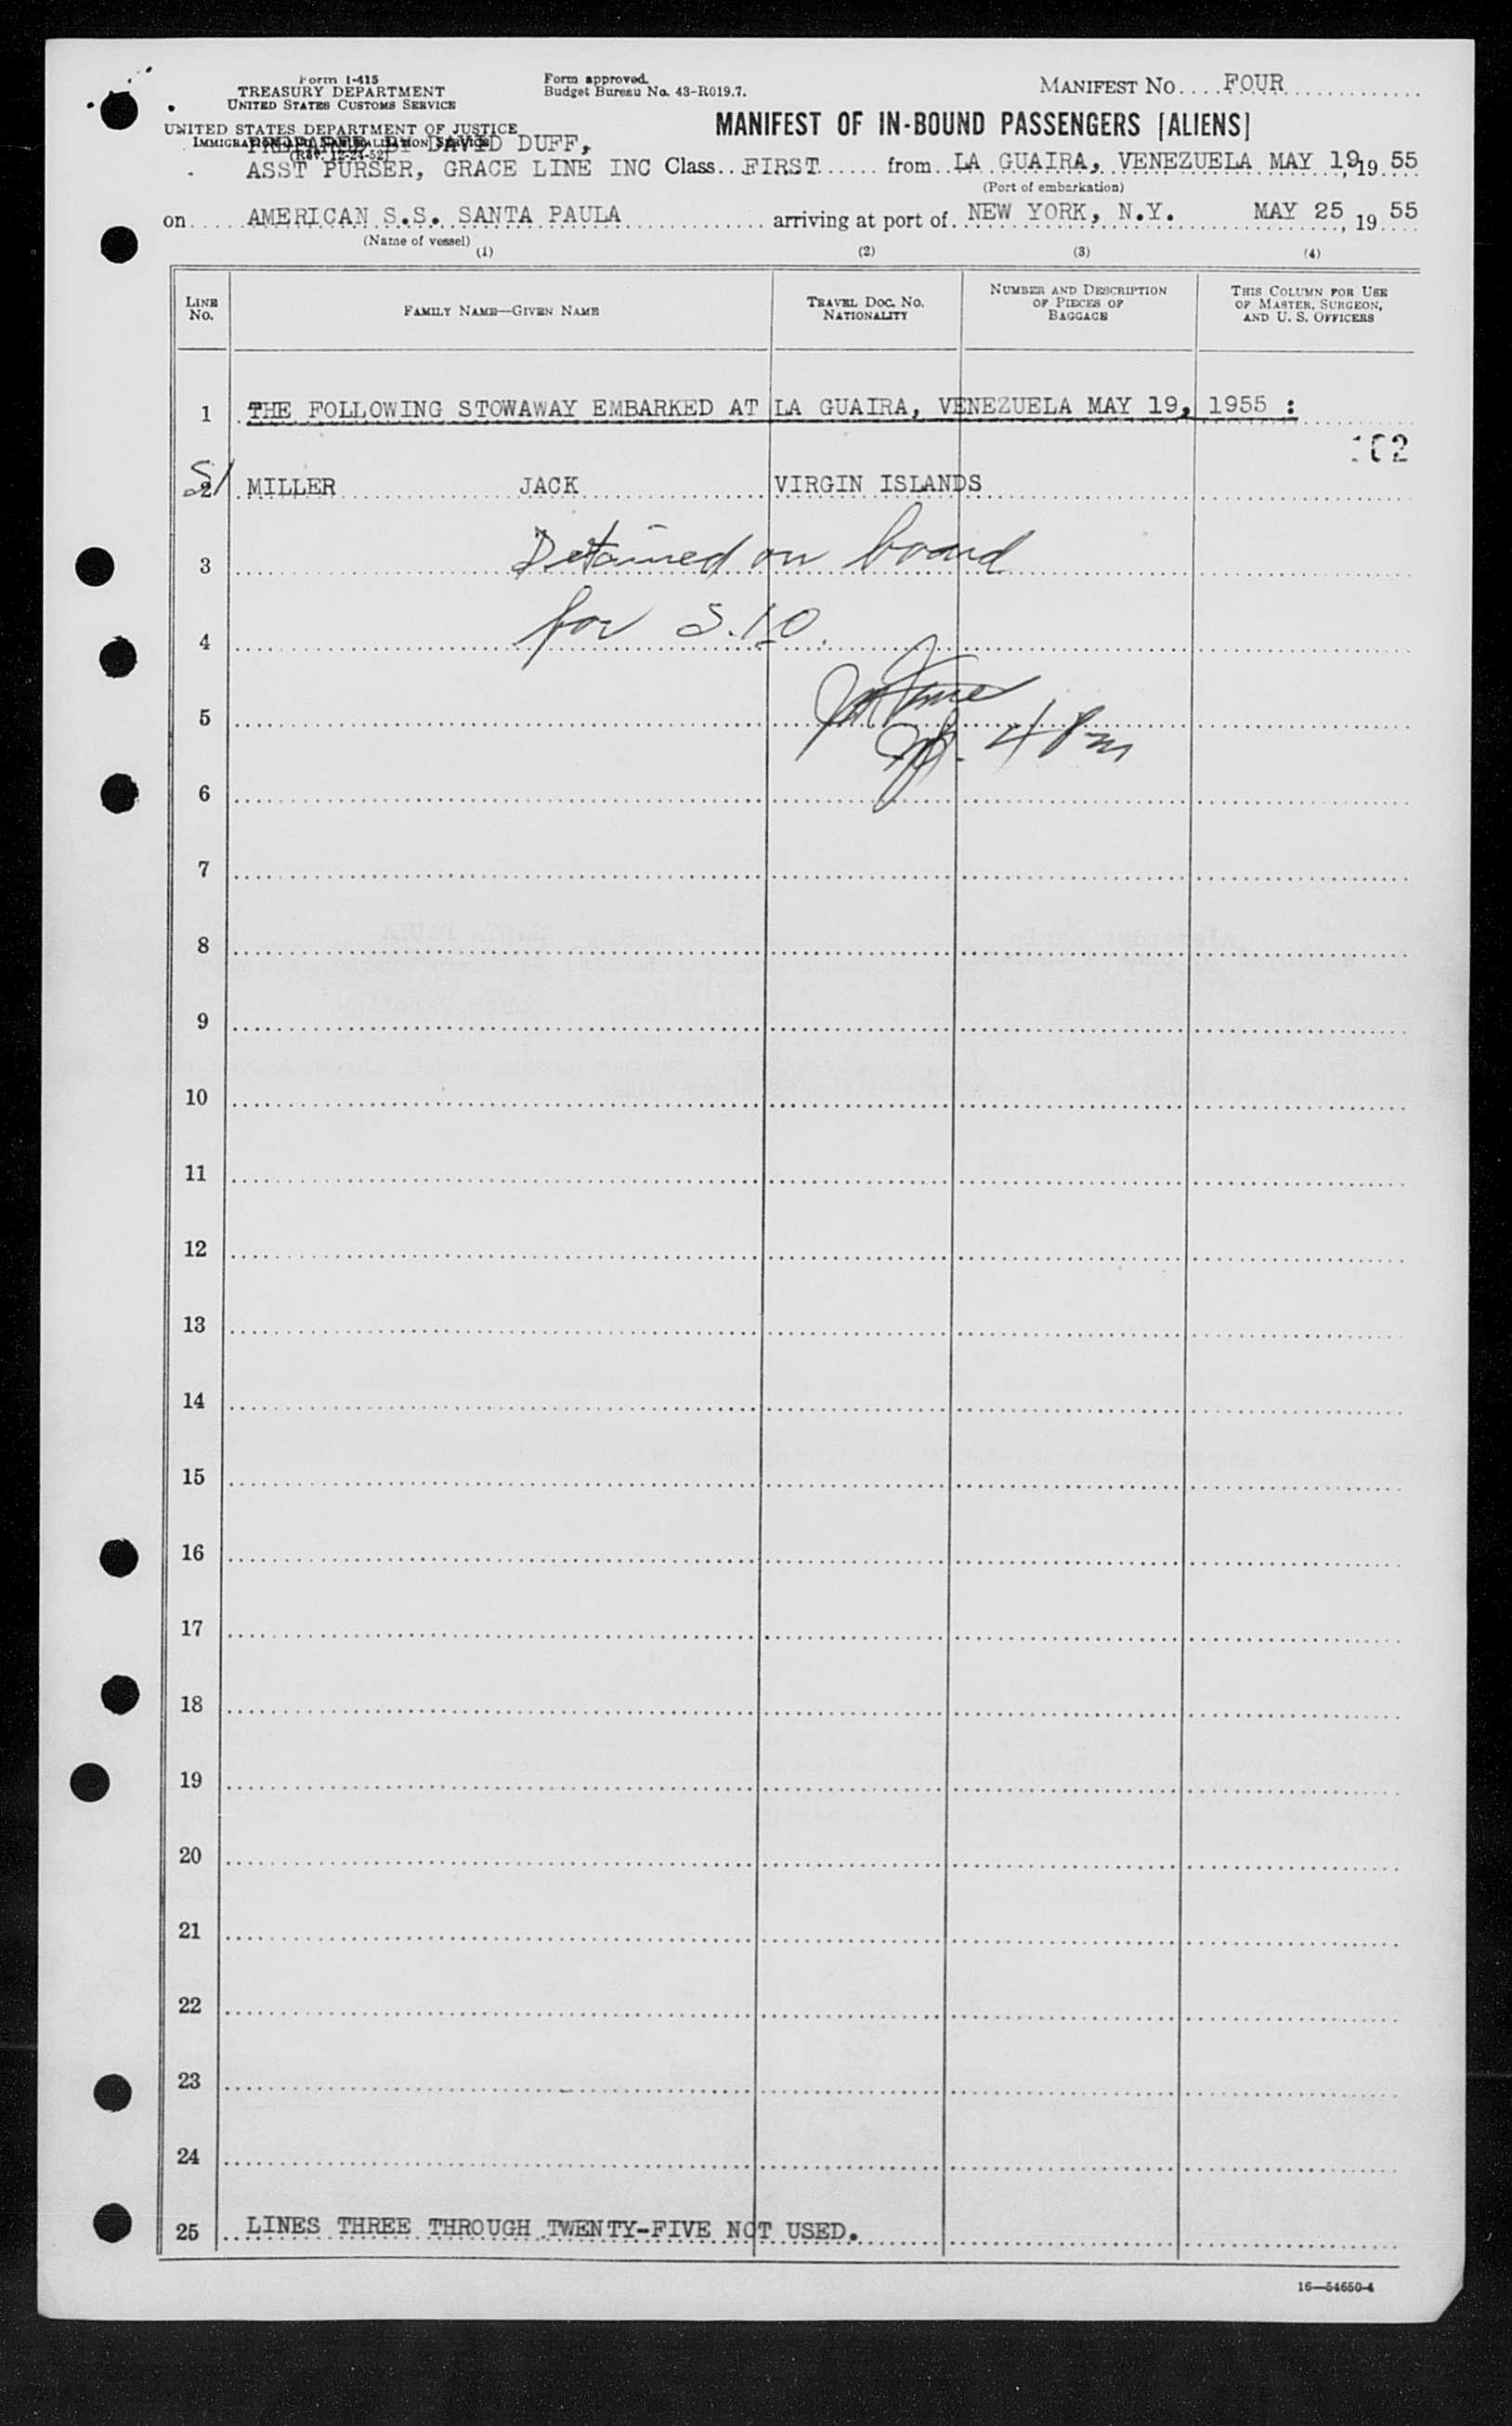 Form I-415
TREASURY DEPARTMENT
UNITED STATES CUSTOMS SERVICE
UNITED STATES DEPARTMENT OF JUSTICE
IMMIGRATION AND NATURALIZATION SERVICE
(Rev. 12-24-52)
Form approved.
Budget Bureau No. 43-R019.7.
MANIFEST NO. FOUR
MANIFEST OF IN-BOUND PASSENGERS [ALIENS]
PREPARED BY DAVID DUFF,
ASST PURSER, GRACE LINE INC Class FIRST from LA GUAIRA, VENEZUELA MAY 19, 19 55
(Port of embarkation)
on AMERICAN S.S. SANTA PAULA arriving at port of NEW YORK, N.Y. MAY 25, 19 55
(Name of vessel)
(1) (2) (3) (4)
LINE NO.
FAMILY NAME—GIVEN NAME
TRAVEL DOC. NO.
NATIONALITY
NUMBER AND DESCRIPTION
OF PIECES OF
BAGGAGE
THIS COLUMN FOR USE
OF MASTER, SURGEON,
AND U. S. OFFICERS
1 THE FOLLOWING STOWAWAY EMBARKED AT LA GUAIRA, VENEZUELA MAY 19, 1955 :
102
2 MILLER JACK VIRGIN ISLANDS
3 Detained on board
4 for S.I.O.
5
4 Pm
6
7
8
9
10
11
12
13
14
15
16
17
18
19
20
21
22
23
24
25 LINES THREE THROUGH TWENTY-FIVE NOT USED.
16—54650-4